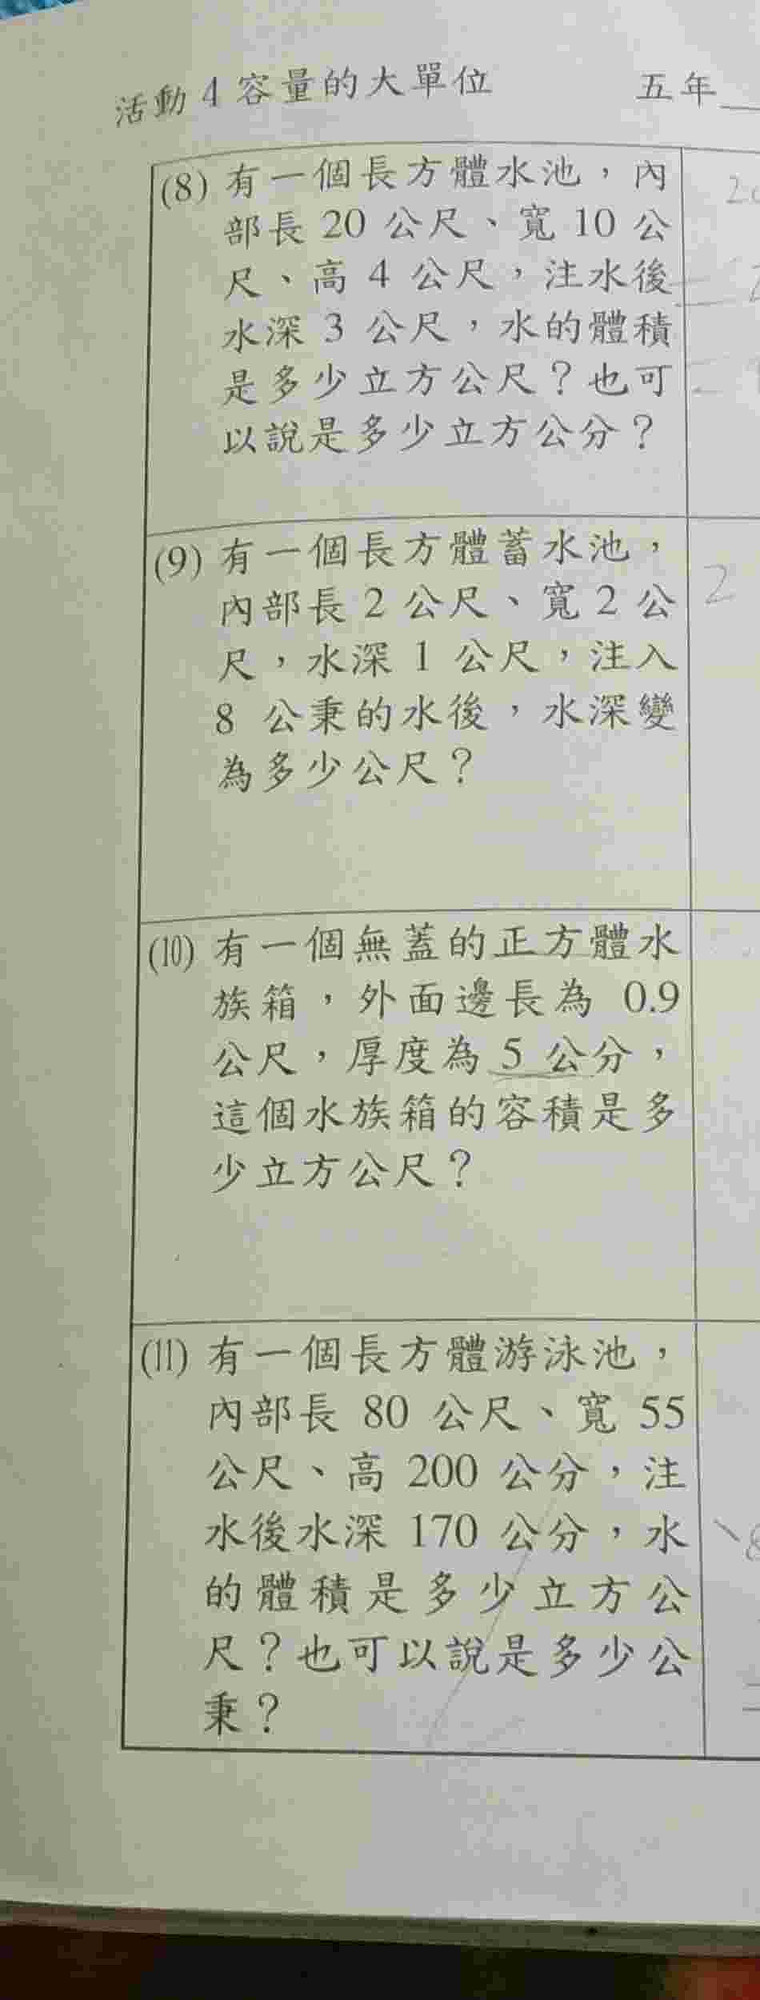 活動 4 容量的大單位 五年
(8) 有一個長方體水池，內
部長 20 公尺、寬 10 公
尺、高 4 公尺，注水後
水深 3 公尺，水的體積
是多少立方公尺？也可
以說是多少立方公分？
(9) 有一個長方體蓄水池，
內部長 2 公尺、寬 2 公
尺，水深 1 公尺，注入
8 公秉的水後，水深變
為多少公尺？
2
(10) 有一個無蓋的正方體水
族箱，外面邊長為 0.9
公尺，厚度為 5 公分，
這個水族箱的容積是多
少立方公尺？
(11) 有一個長方體游泳池，
內部長 80 公尺、寬 55
公尺、高 200 公分，注
水後水深 170 公分，水
的體積是多少立方公
尺？也可以說是多少公
秉？